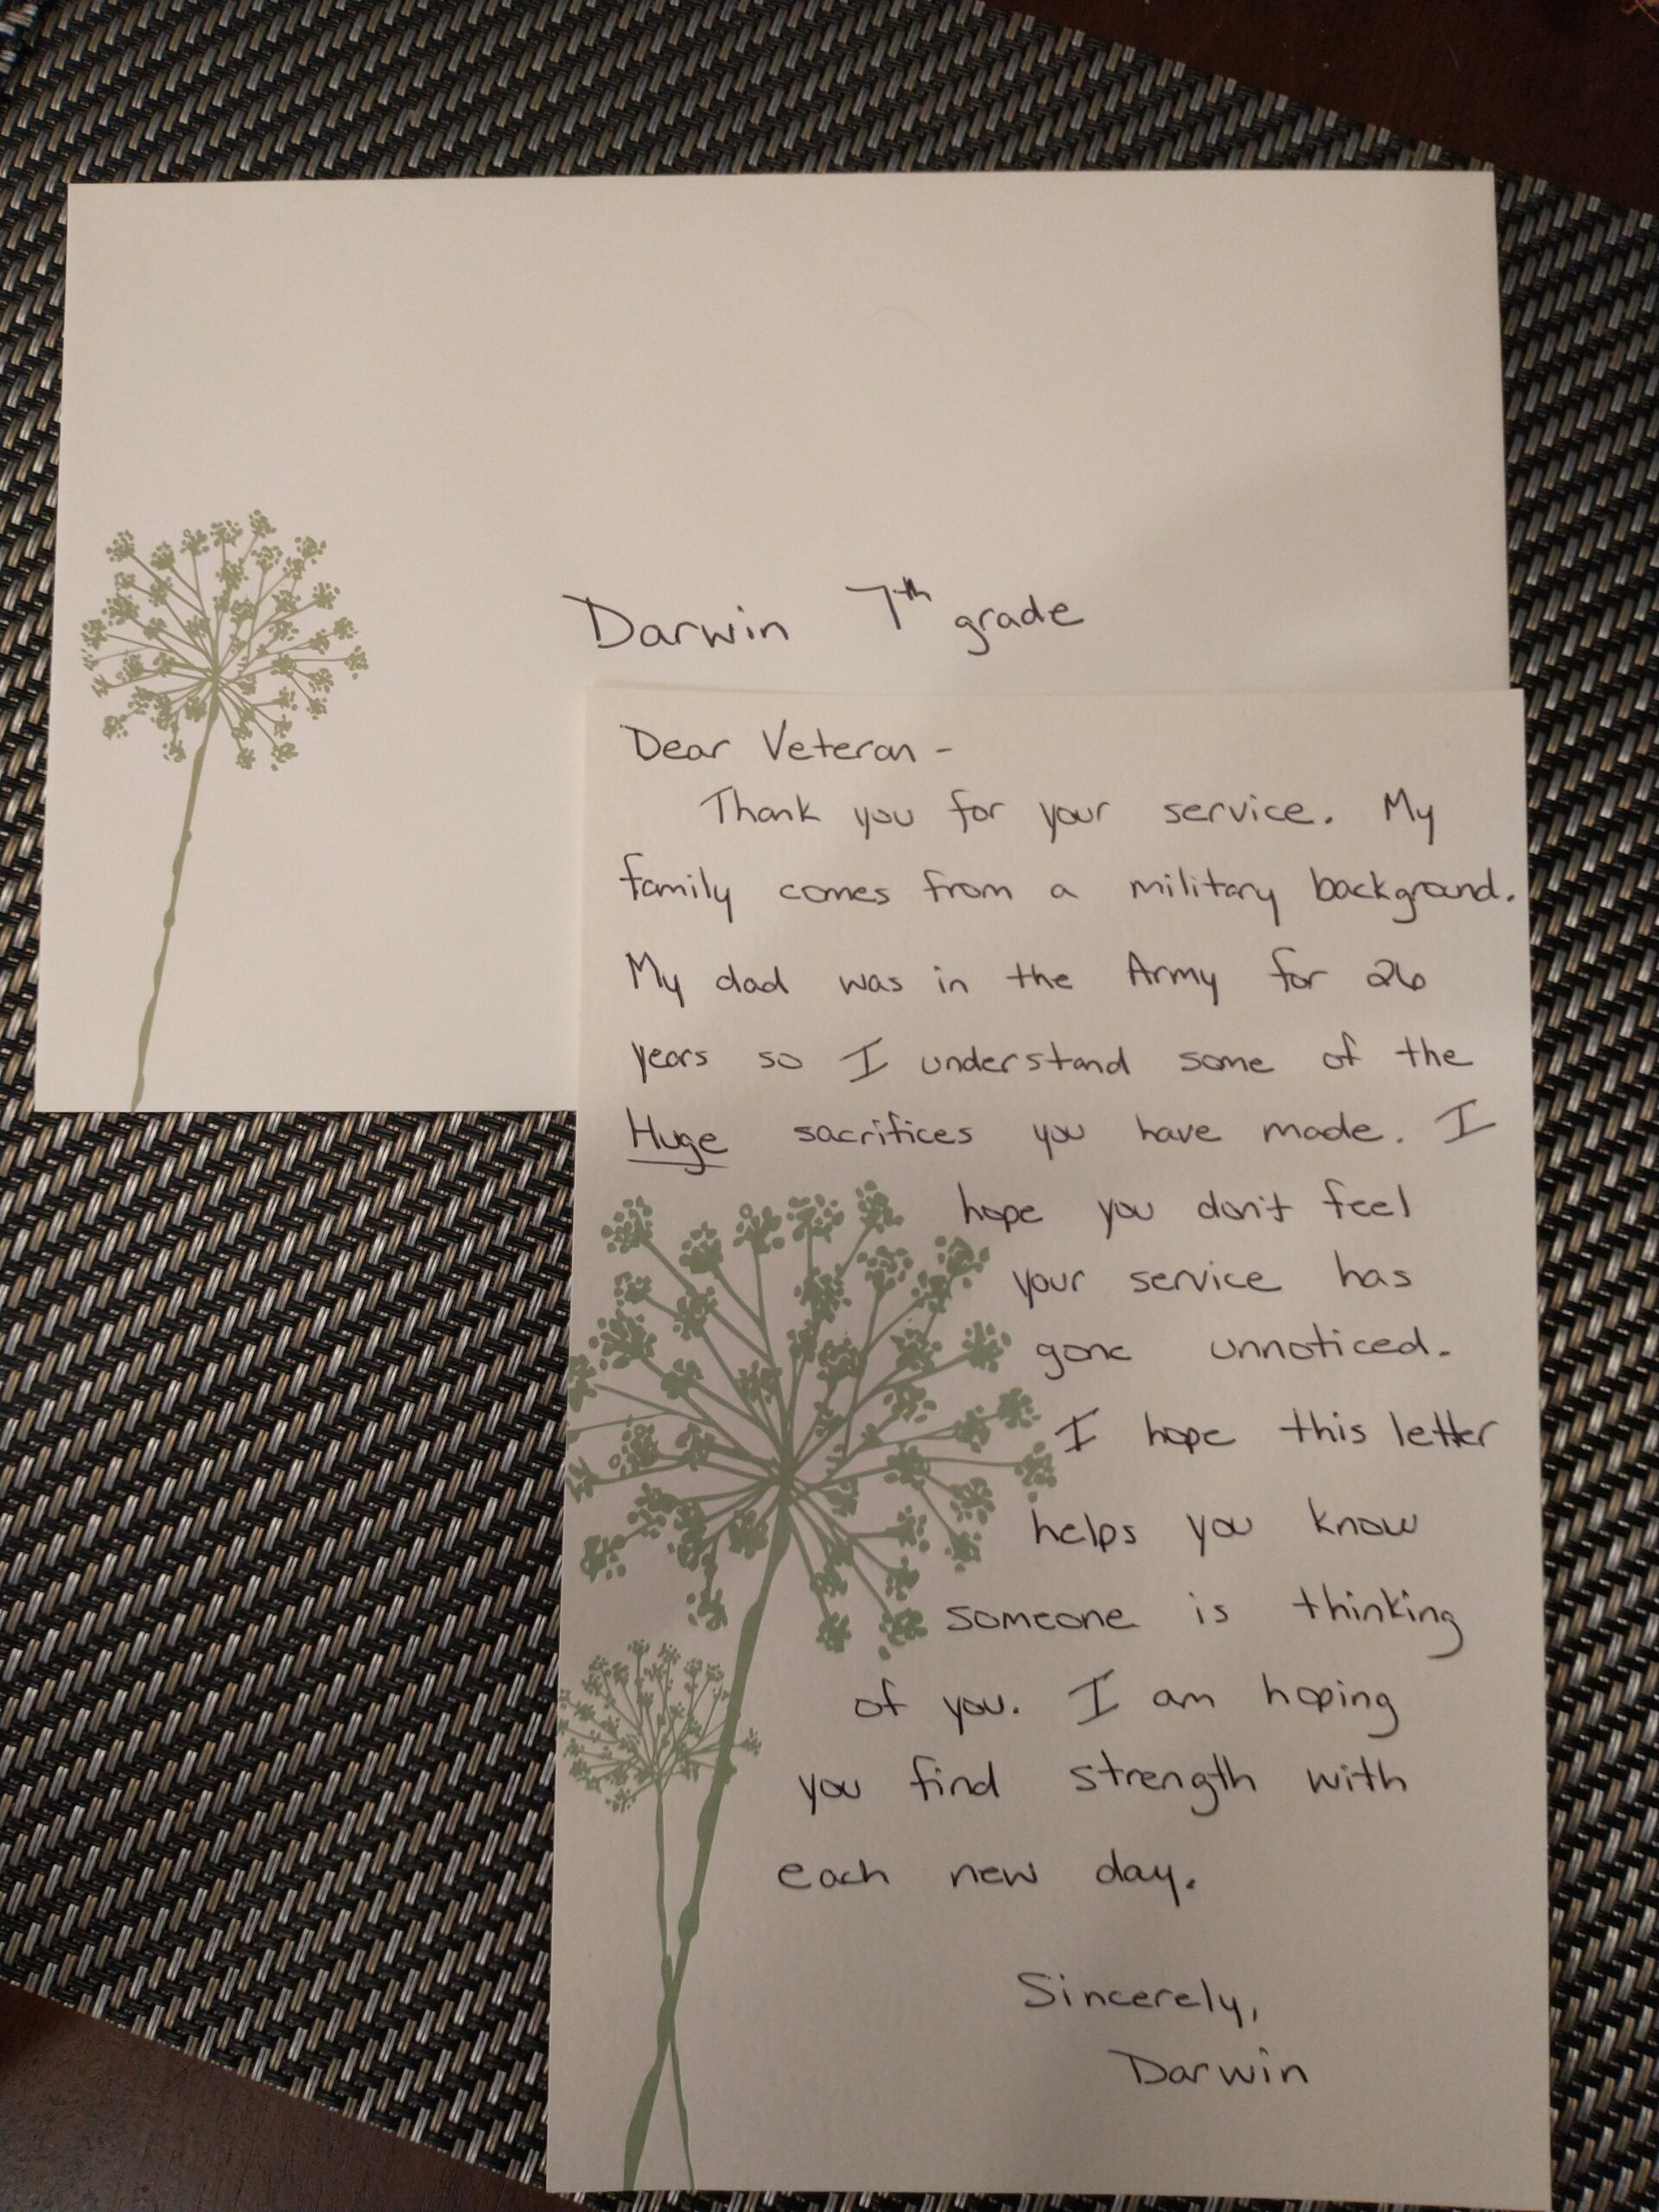 Darwin 7th grade
Dear Veteran -
Thank you for your service. My
family comes from a military background.
My dad was in the Army for 26
years so I understand some of the
Huge sacrifices you have made. I
hope you don't feel
your service has
gone unnoticed.
I hope this letter
helps you know
someone is thinking
of you. I am hoping
you find strength with
each new day.
Sincerely,
Darwin